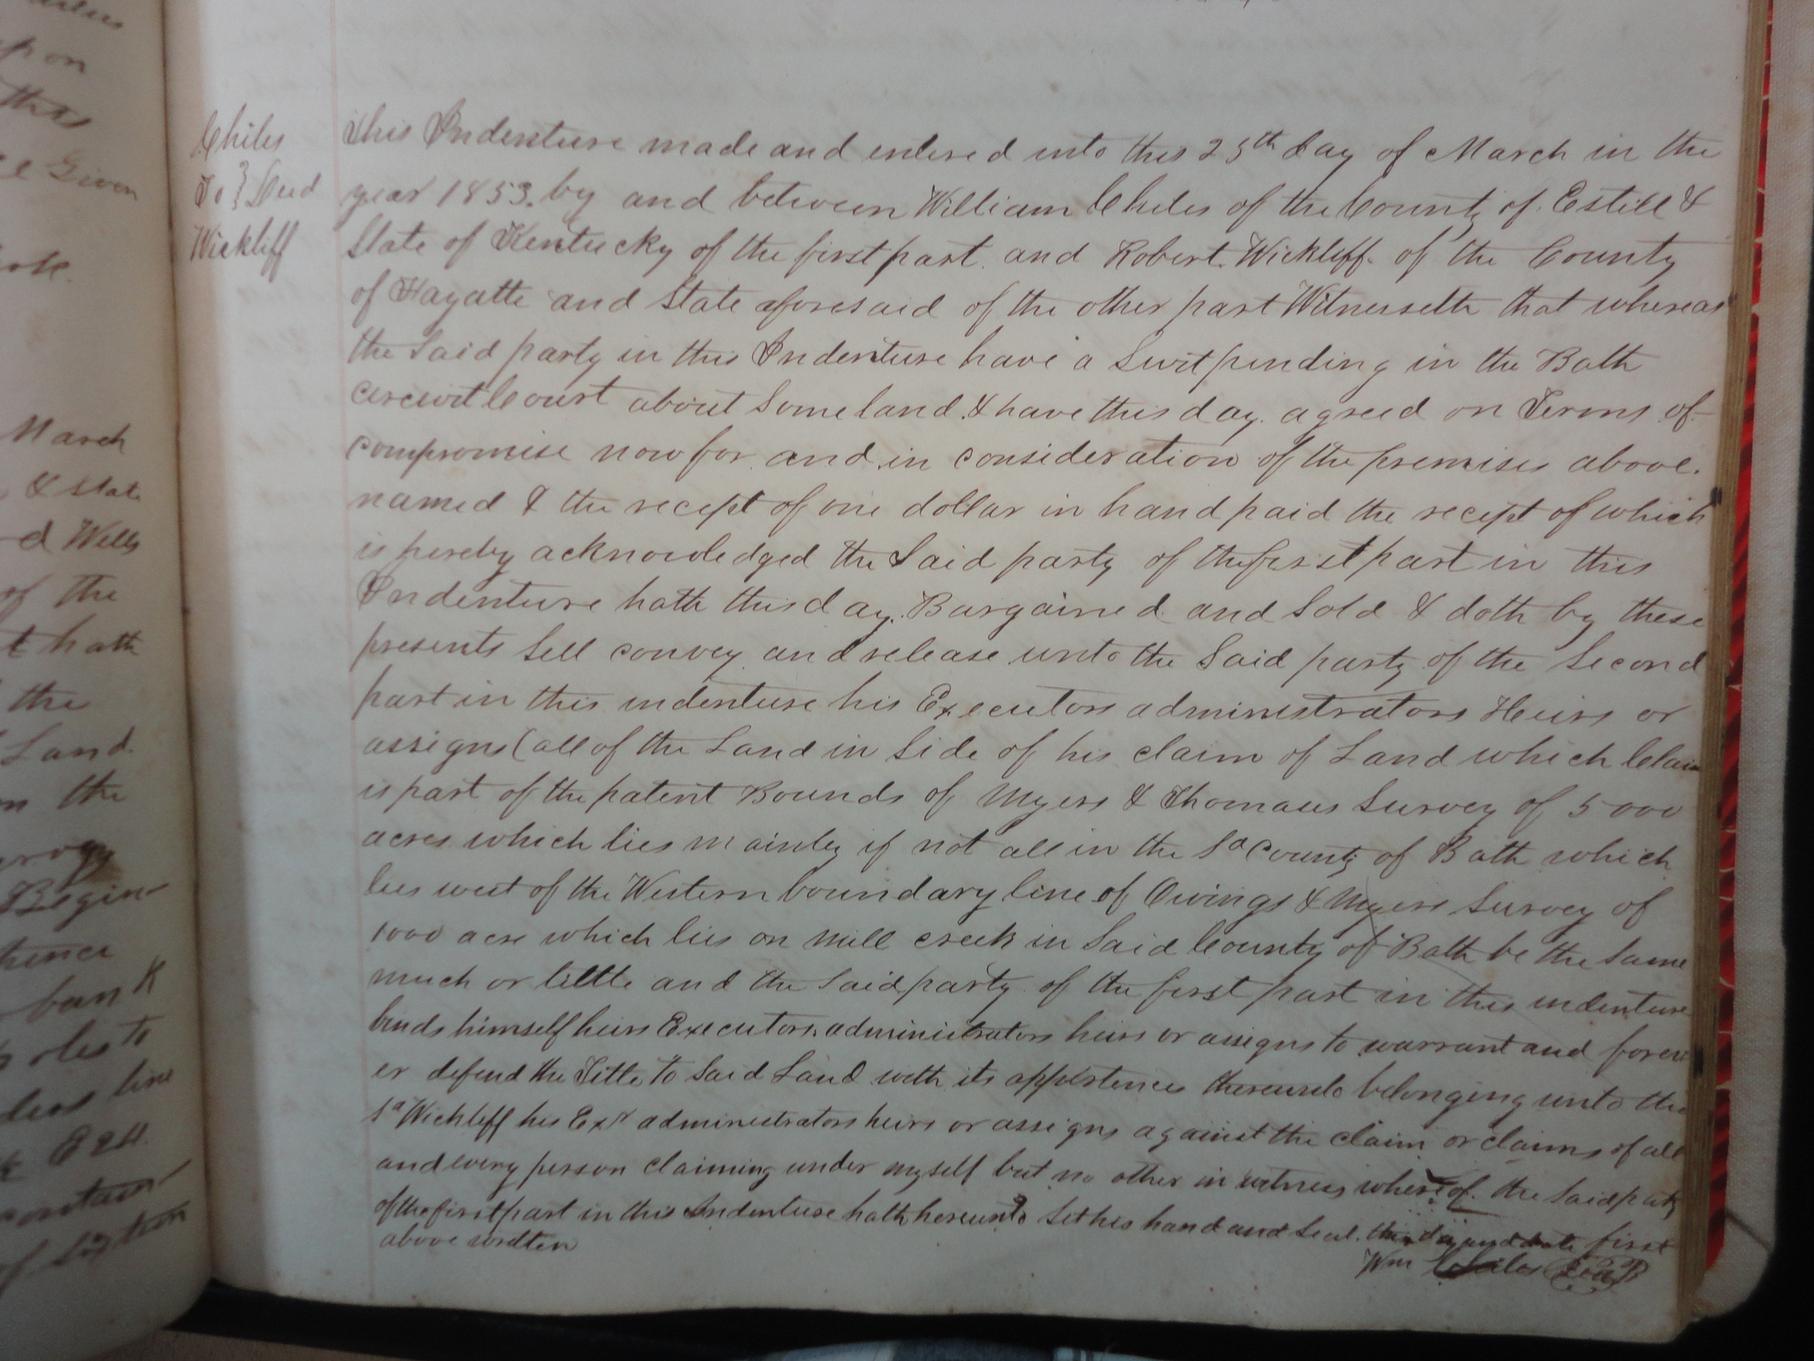 upon
thts
Given
March
& State
d Wells
of the
t hath
the
Land
n the
Begin-
thence
bank
poles to
line
E 24
contain-
of Sixteen
Chiles
To } Deed
Wickliff
This Indenture made and entered into this 25th day of March in the
year 1853. by and between William Chiles of the County of Estill &
State of Kentucky of the first part. and Robert Wickliff of the County
of Fayatte and State aforesaid of the other part Witnesseth that whereas
the Said party in this Indenture have a Suit pending in the Bath
circuit Court about Some land & have this day. agreed on Terms of
compromise now for and in consideration of the premises above.
named & the recept of one dollar in hand paid the recept of which
is hereby acknowledged the Said party of the first part in this
Indenture hath this day. Bargained and Sold & doth by these
presents Sell convey and release unto the Said party of the Second
part in this indenture his Executors administrators Heirs or
assigns (all of the Land in Side of his claim of Land which Claim
is part of the patent Bounds of Myers & Thomaus Survey of 5000
acres which lies mainly if not all in the Sd County of Bath which
lies west of the Western boundary line of Owings & Myers Survey of
1000 acre which lies on Mill creek in Said County of Bath be the Same
much or little and the Said party of the first part in this indenture
binds himself heirs Executors administrators heirs or assigns to warrant and forev
er defend the Title to Said Land with its appertences thereunto belonging unto the
Sd Wickliff his Exr administrators heirs or assigns against the claim or claims of all
and every person claiming under myself but no other in witness whereof. the Said party
of the first part in this Indenture hath hereunto Set his hand and Seal. the day and date first
above written
Wm Chiles Seal